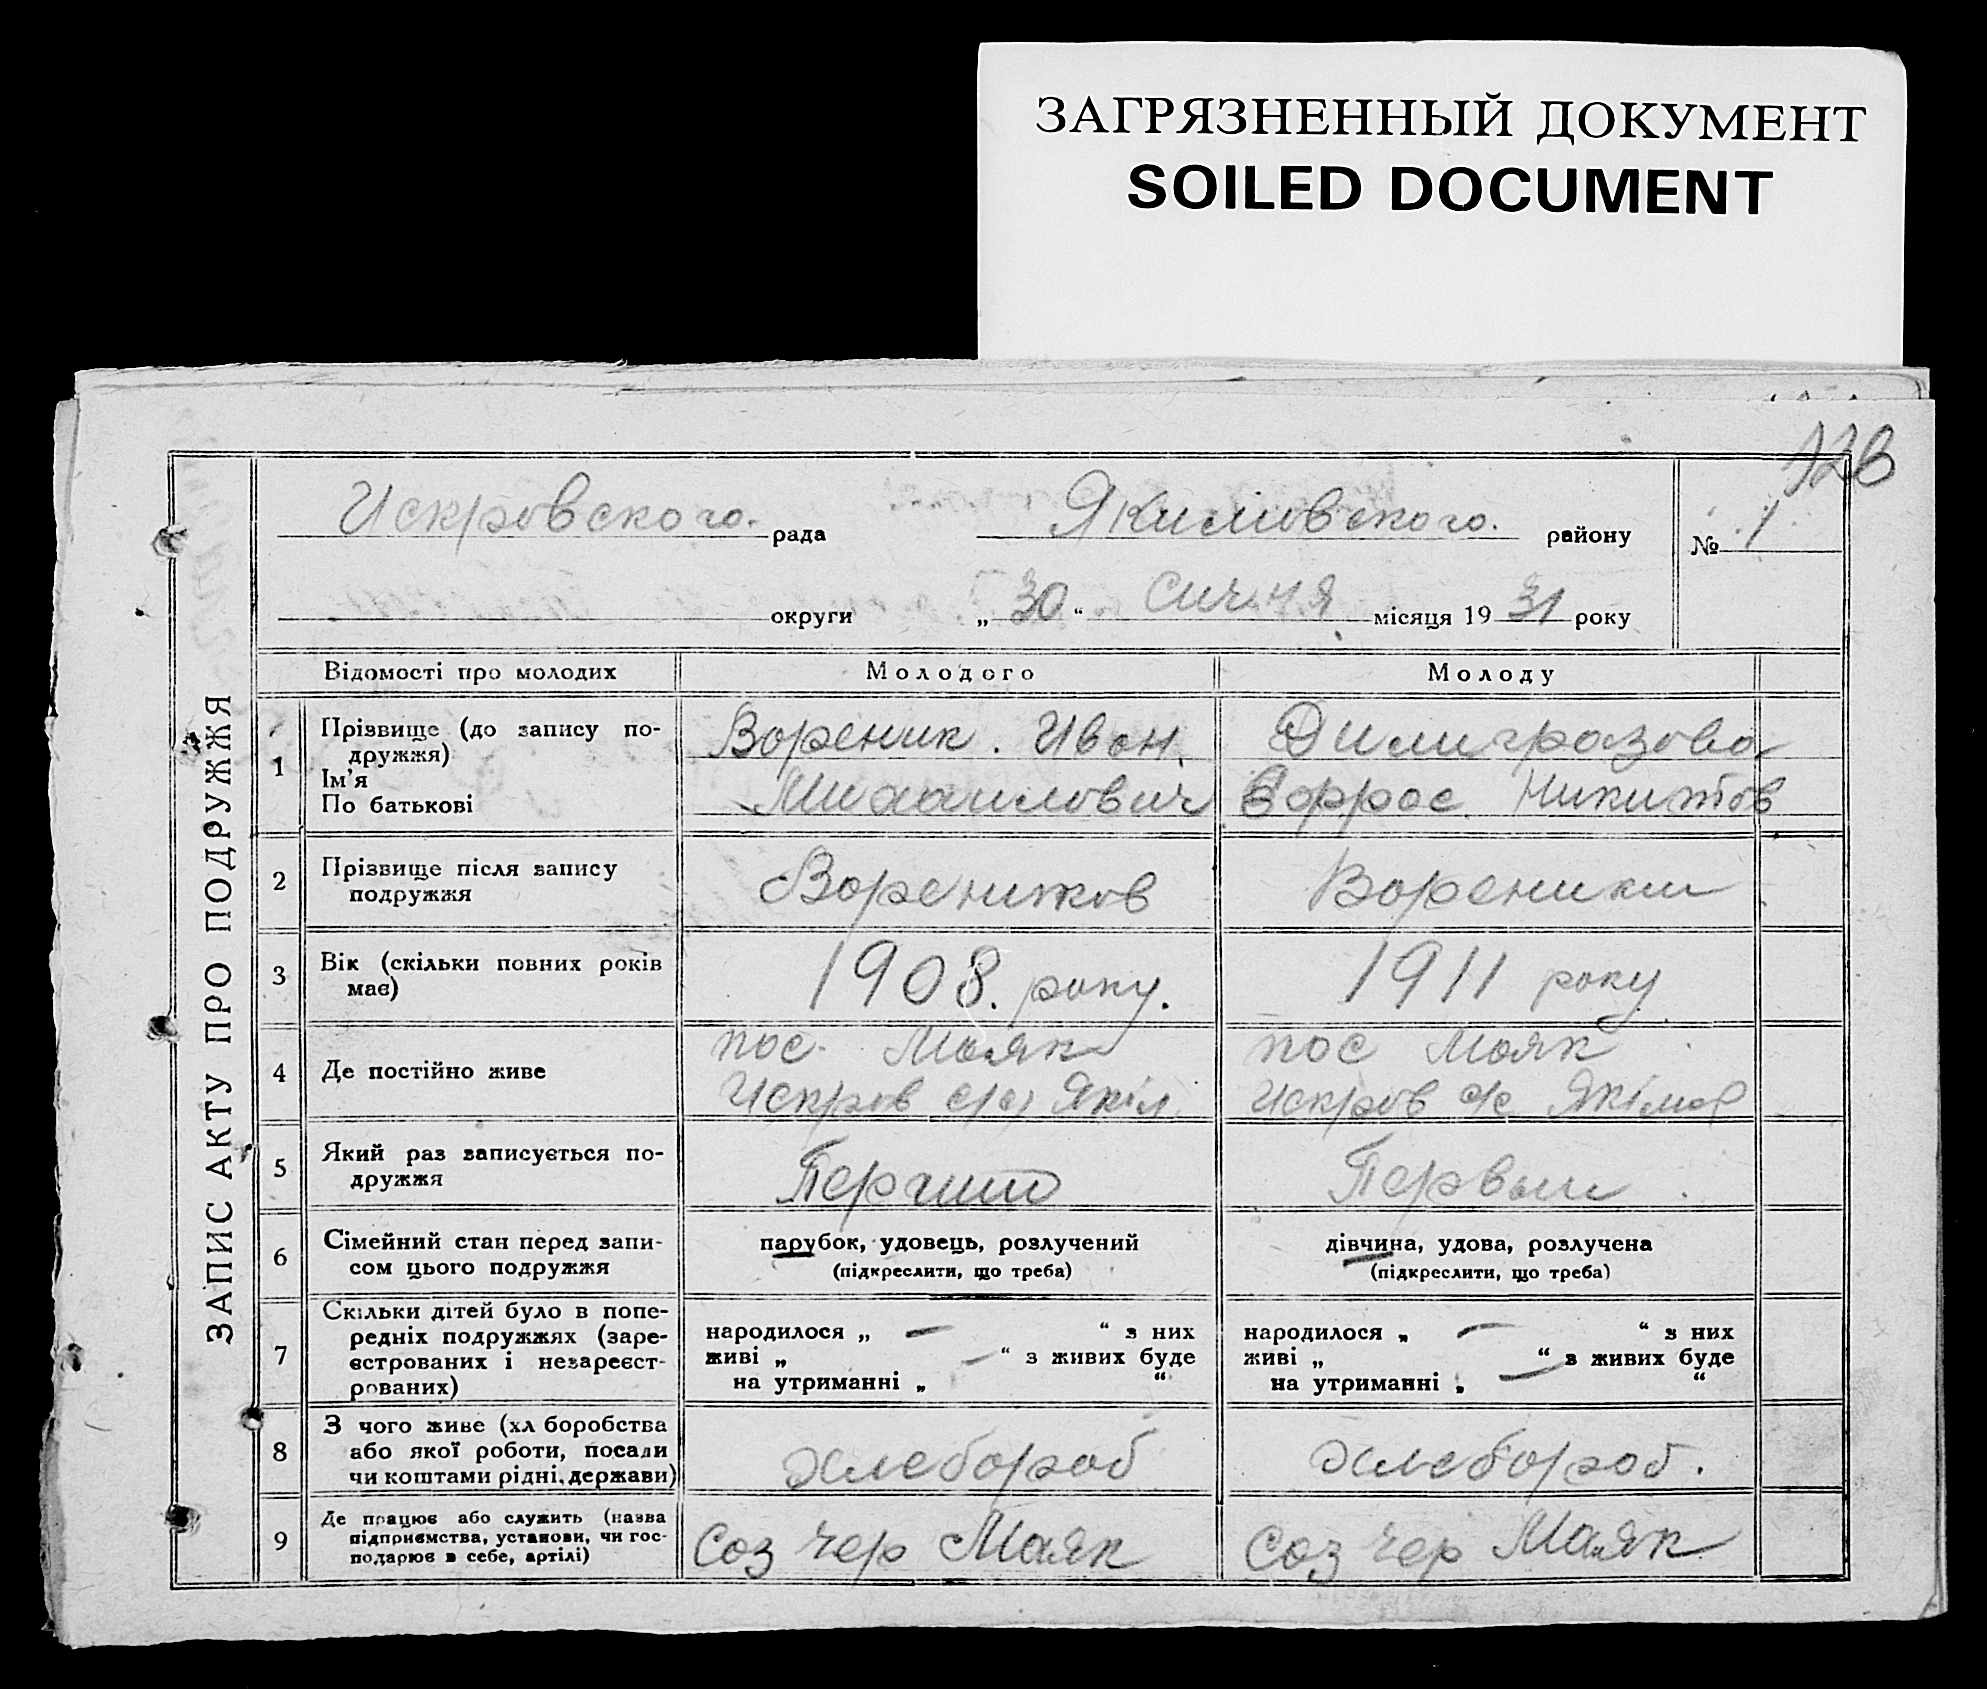 ЗАГРЯЗНЕННЫЙ ДОКУМЕНТ
SOILED DOCUMENT
128
ЗАПИС АКТУ ПРО ПОДРУЖЖЯ
Искровского. рада Якимовского. району № 1
округи „ 30 “ Сичня місяця 19 31 року
Відомості про молодих Молодого Молоду
1 Прізвище (до запису по- Вореник. Иван Дилигразова
дружжя)
Ім'я
По батькові Михаилович Никитов
2 Прізвище після запису Вореников Вореники
подружжя
3 Вік (скільки повних років 1908. року. 1911 року
має)
4 Де постійно живе пос. Маяк пос Маяк
Искров с/с Якім Искров с/с Якімов
5 Який раз записується по- Перший Первый
дружжя
6 Сімейний стан перед запи- парубок, удовець, розлучений дівчина, удова, розлучена
сом цього подружжя (підкреслити, що треба) (підкреслити, що треба)
7 Скільки дітей було в попе-
редніх подружжях (заре- народилося „ — “ з них народилося „ — “ з них
єстрованих і незареєст- живі „ — “ з живих буде живі „ “ з живих буде
рованих) на утриманні „ “ на утриманні „ — “
8 З чого живе (хл боробства
або якої роботи, посади хлебороб хлебороб.
чи коштами рідні, держави)
9 Де працює або служить (назва
підприємства, установи, чи гос- Соз чер Маяк Соз чер Маяк
подарює в себе, артілі)